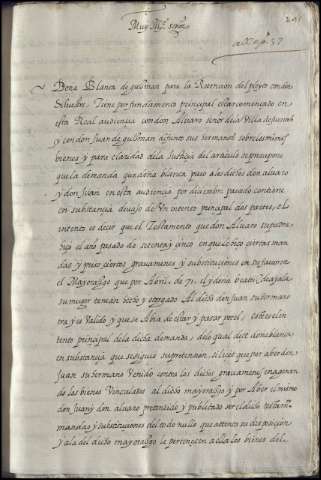 Muy Ill.e señor
241
Doña Blanca de guzman para la Retencion del pleyto con don
Esteuan. Tiene por fundamento principal estar començado en
esta Real audiencia con don Alvaro señor de la Villa de
y con don Juan de guzman difunto sus hermanos sobre los mismos
bienes y para claridad de la Justicia del articulo se presupone
que la demanda que doña blanca puso a los dichos don aluaro
y don Juan en esta audiencia por diziembre pasado contiene
en substancia debajo de Un intento principal dos partes, o lo
intento es dezir que el Testamento que don Aluaro su padre
hizo el año pasado de setenta y cinco en que hizo ciertas man
das y puso ciertos grauamenes y substituciones en su fauor
el Mayorazgo que por Abril de 71. el y doña beatriz
su muger tenian hecho y otorgado Al dicho don Juan su hermano
y es Valido y que se Abia de estar y pasar por el, este es el in
tento principal de la dicha demanda, de lo qual dize doña blanca
en substancia que se siguio su pretension. es a saber que por aber don
Juan su hermano Venido contra los dichos grauamenes enagenan
do los bienes Vinculados al dicho mayorazgo y por Aber el mismo
don Juan y don aluaro pretendido y publicado ser el dicho testamento
mandas y substituciones del todo nullo que attento su disposicion
y a la del dicho mayorazgo le pertenecen a ella los bienes del